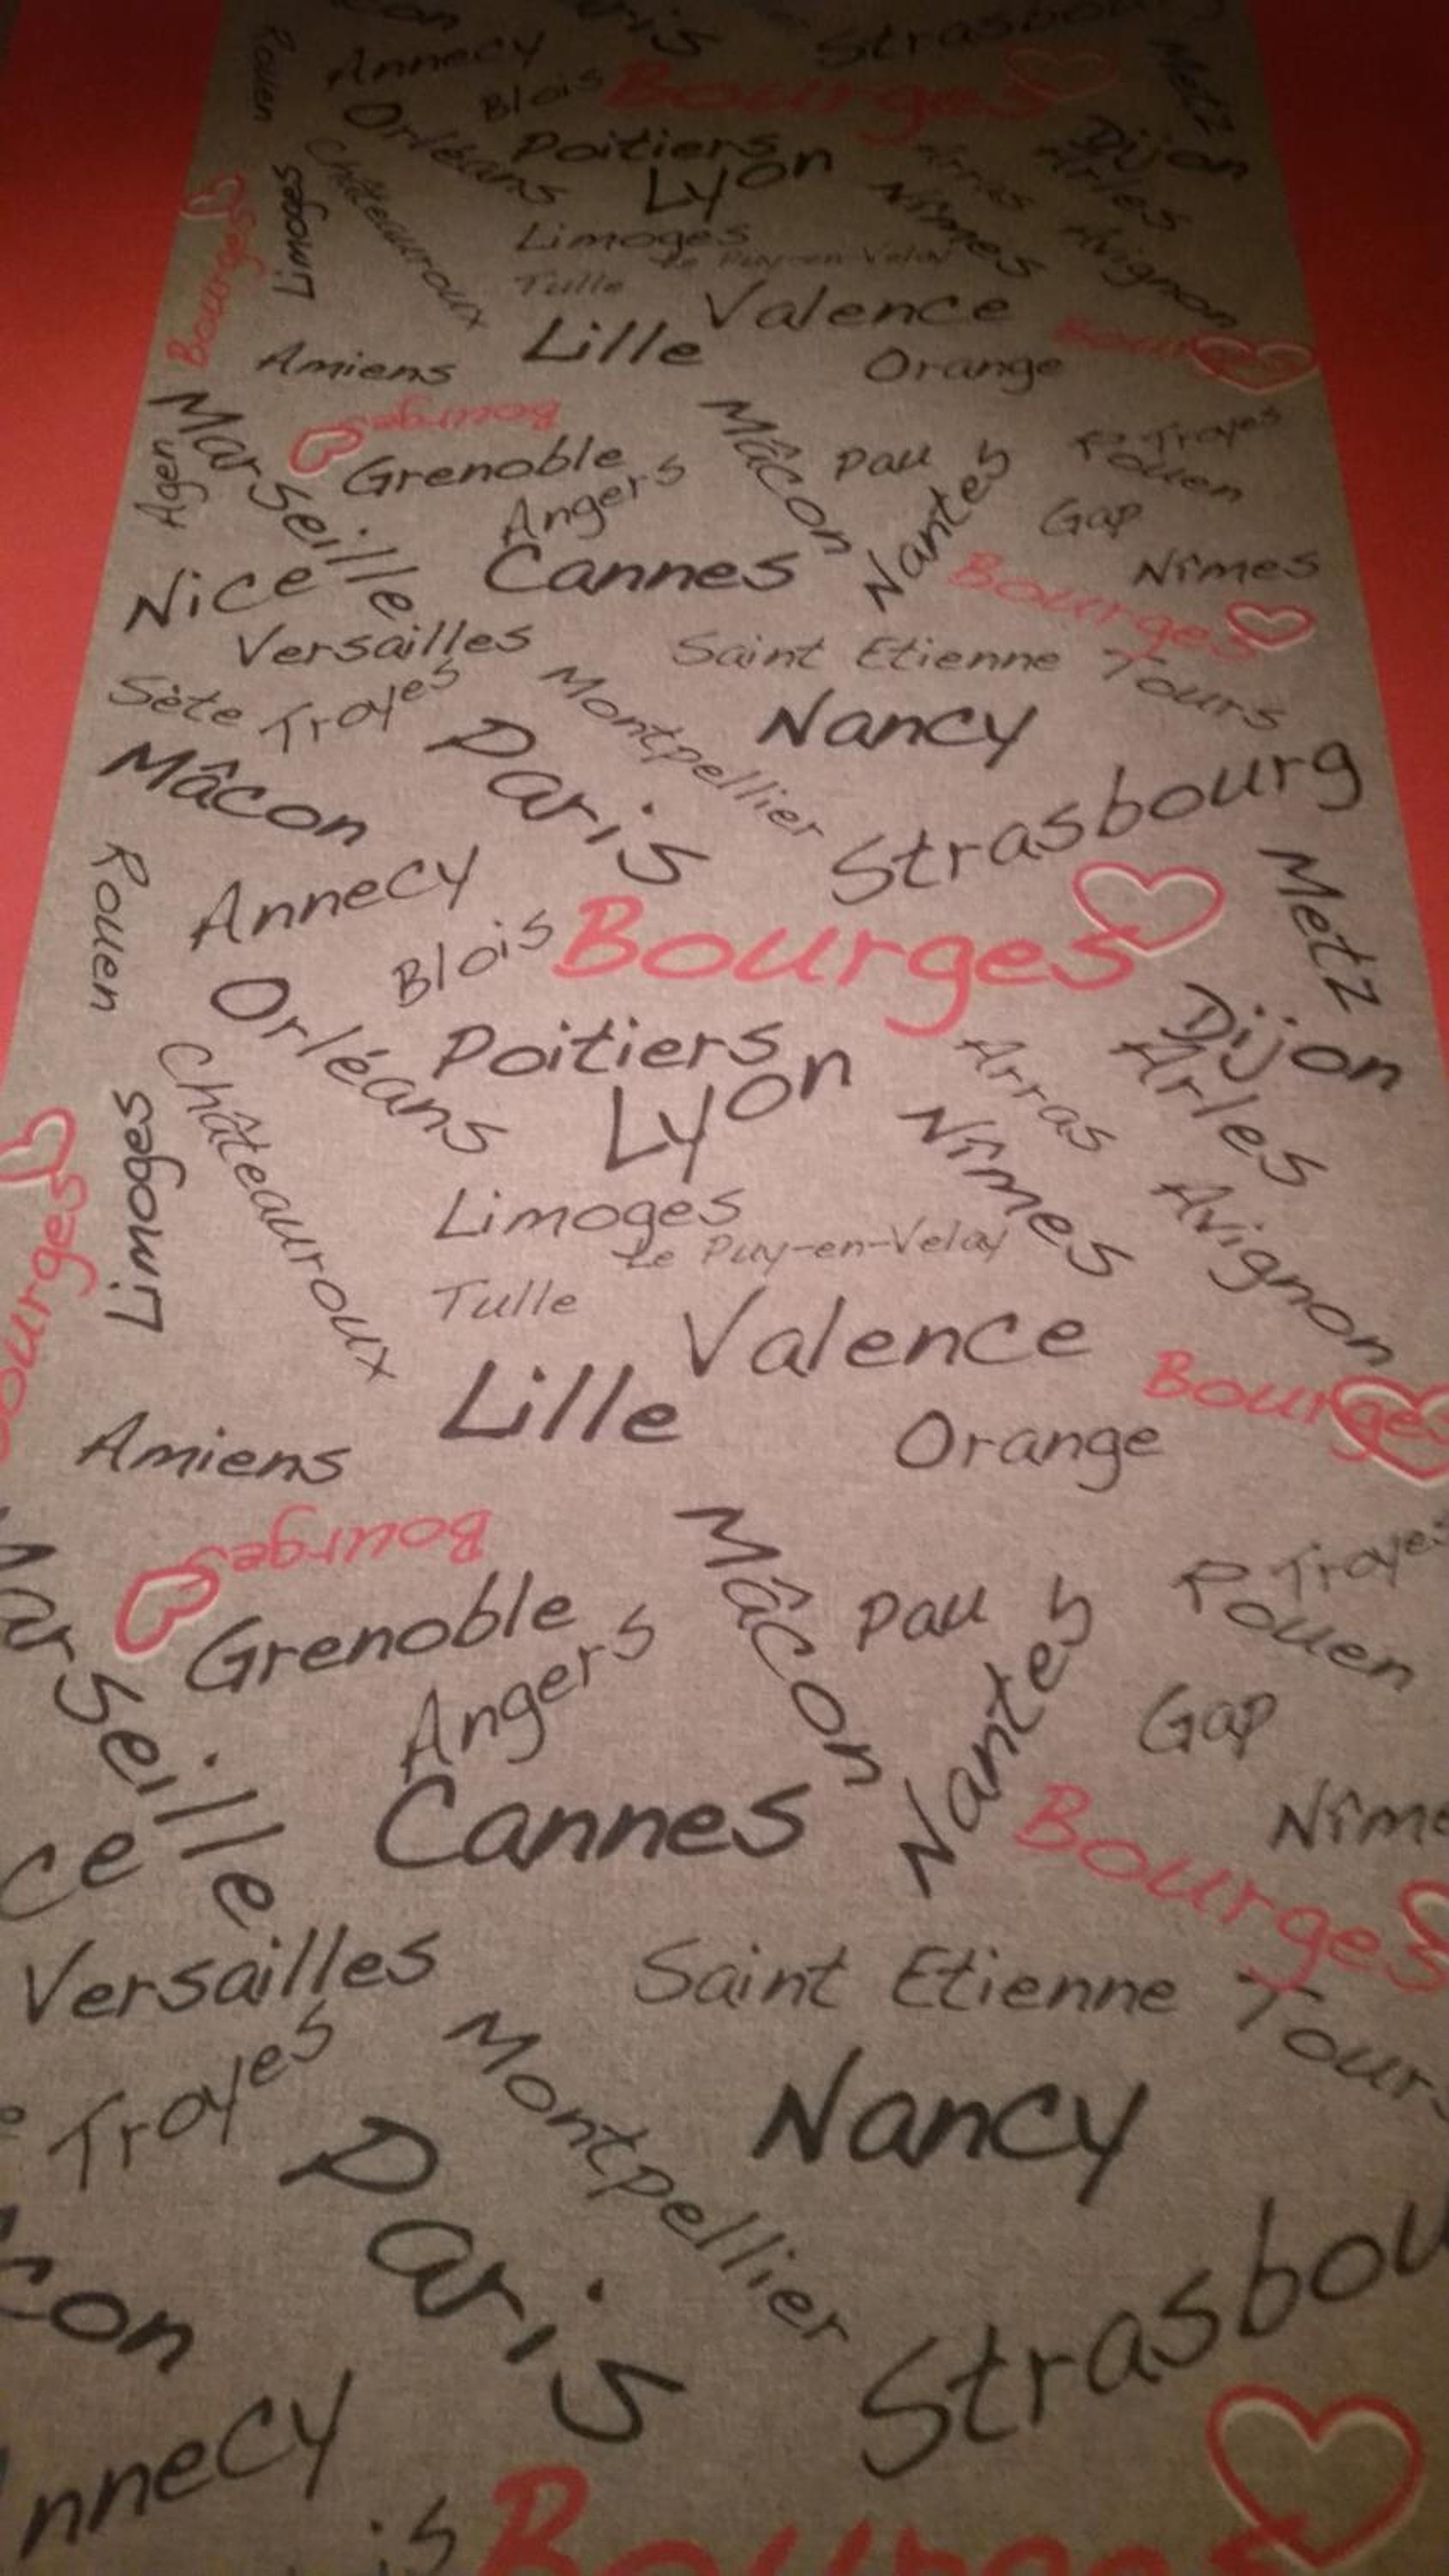 con
Paris
Strasbourg
Annecy
Rouen
Metz
Blois
Bourges
Orléans
Poitiers
Dijon
Lyon
Arras
Arles
Châteauroux
Limoges
Nîmes
Limoges
Avignon
Bourges
Le Puy-en-Velay
Tulle
Valence
Lille
Bourges
Amiens
Orange
Marseille
Bourges
Mâcon
Troyes
Grenoble
Pau
Rouen
Agen
Angers
Nantes
Gap
Cannes
Nîmes
Nice
Bourges
Versailles
Saint Etienne
Tours
Sète
Troyes
Montpellier
Nancy
Mâcon
Paris
Strasbourg
Rouen
Annecy
Metz
Blois
Bourges
Orléans
Dijon
Poitiers
Lyon
Arras
Arles
Châteauroux
Limoges
Nîmes
Limoges
Avignon
ourges
Le Puy-en-Velay
Tulle
Valence
Lille
Bourges
Amiens
Orange
Bourges
Mâcon
Troyes
arseille
Grenoble
Pau
Rouen
Angers
Nantes
Gap
Cannes
Nîme
ce
Bourges
Versailles
Saint Etienne
Tours
Troyes
Montpellier
Nancy
Paris
con
Strasbou
nnecy
is
Bourges